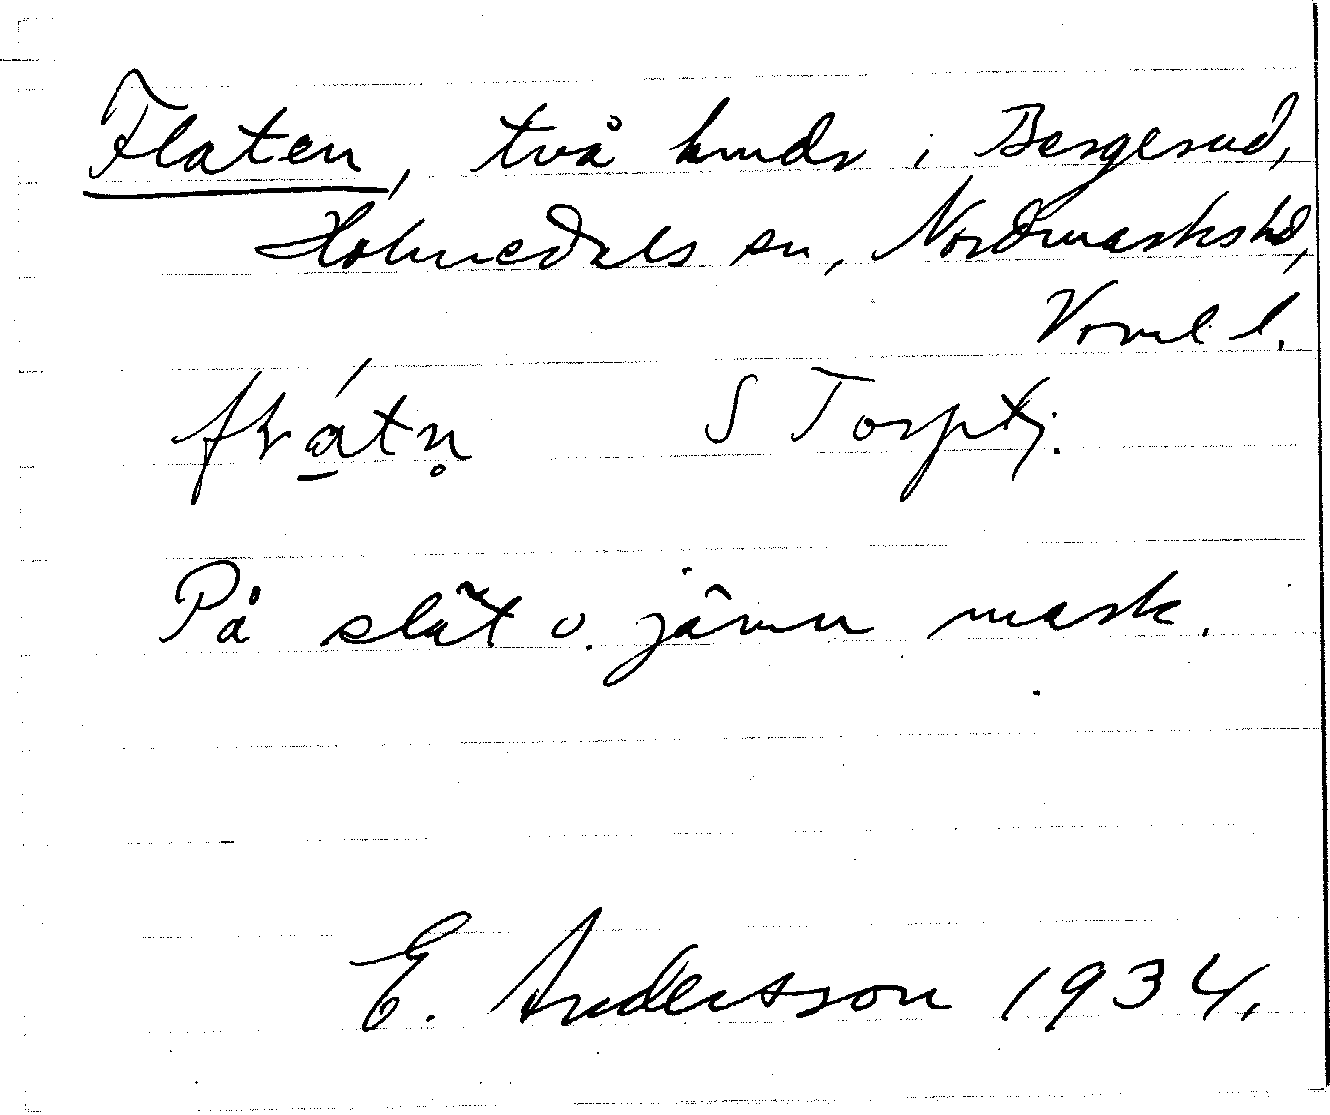 Flaten, två hmdr i Bergerud,
Holmedals sn, Nordmarks hd,
Vrml l.
S Torptj.
På slät o. jämn mark.
E. Andersson 1934.